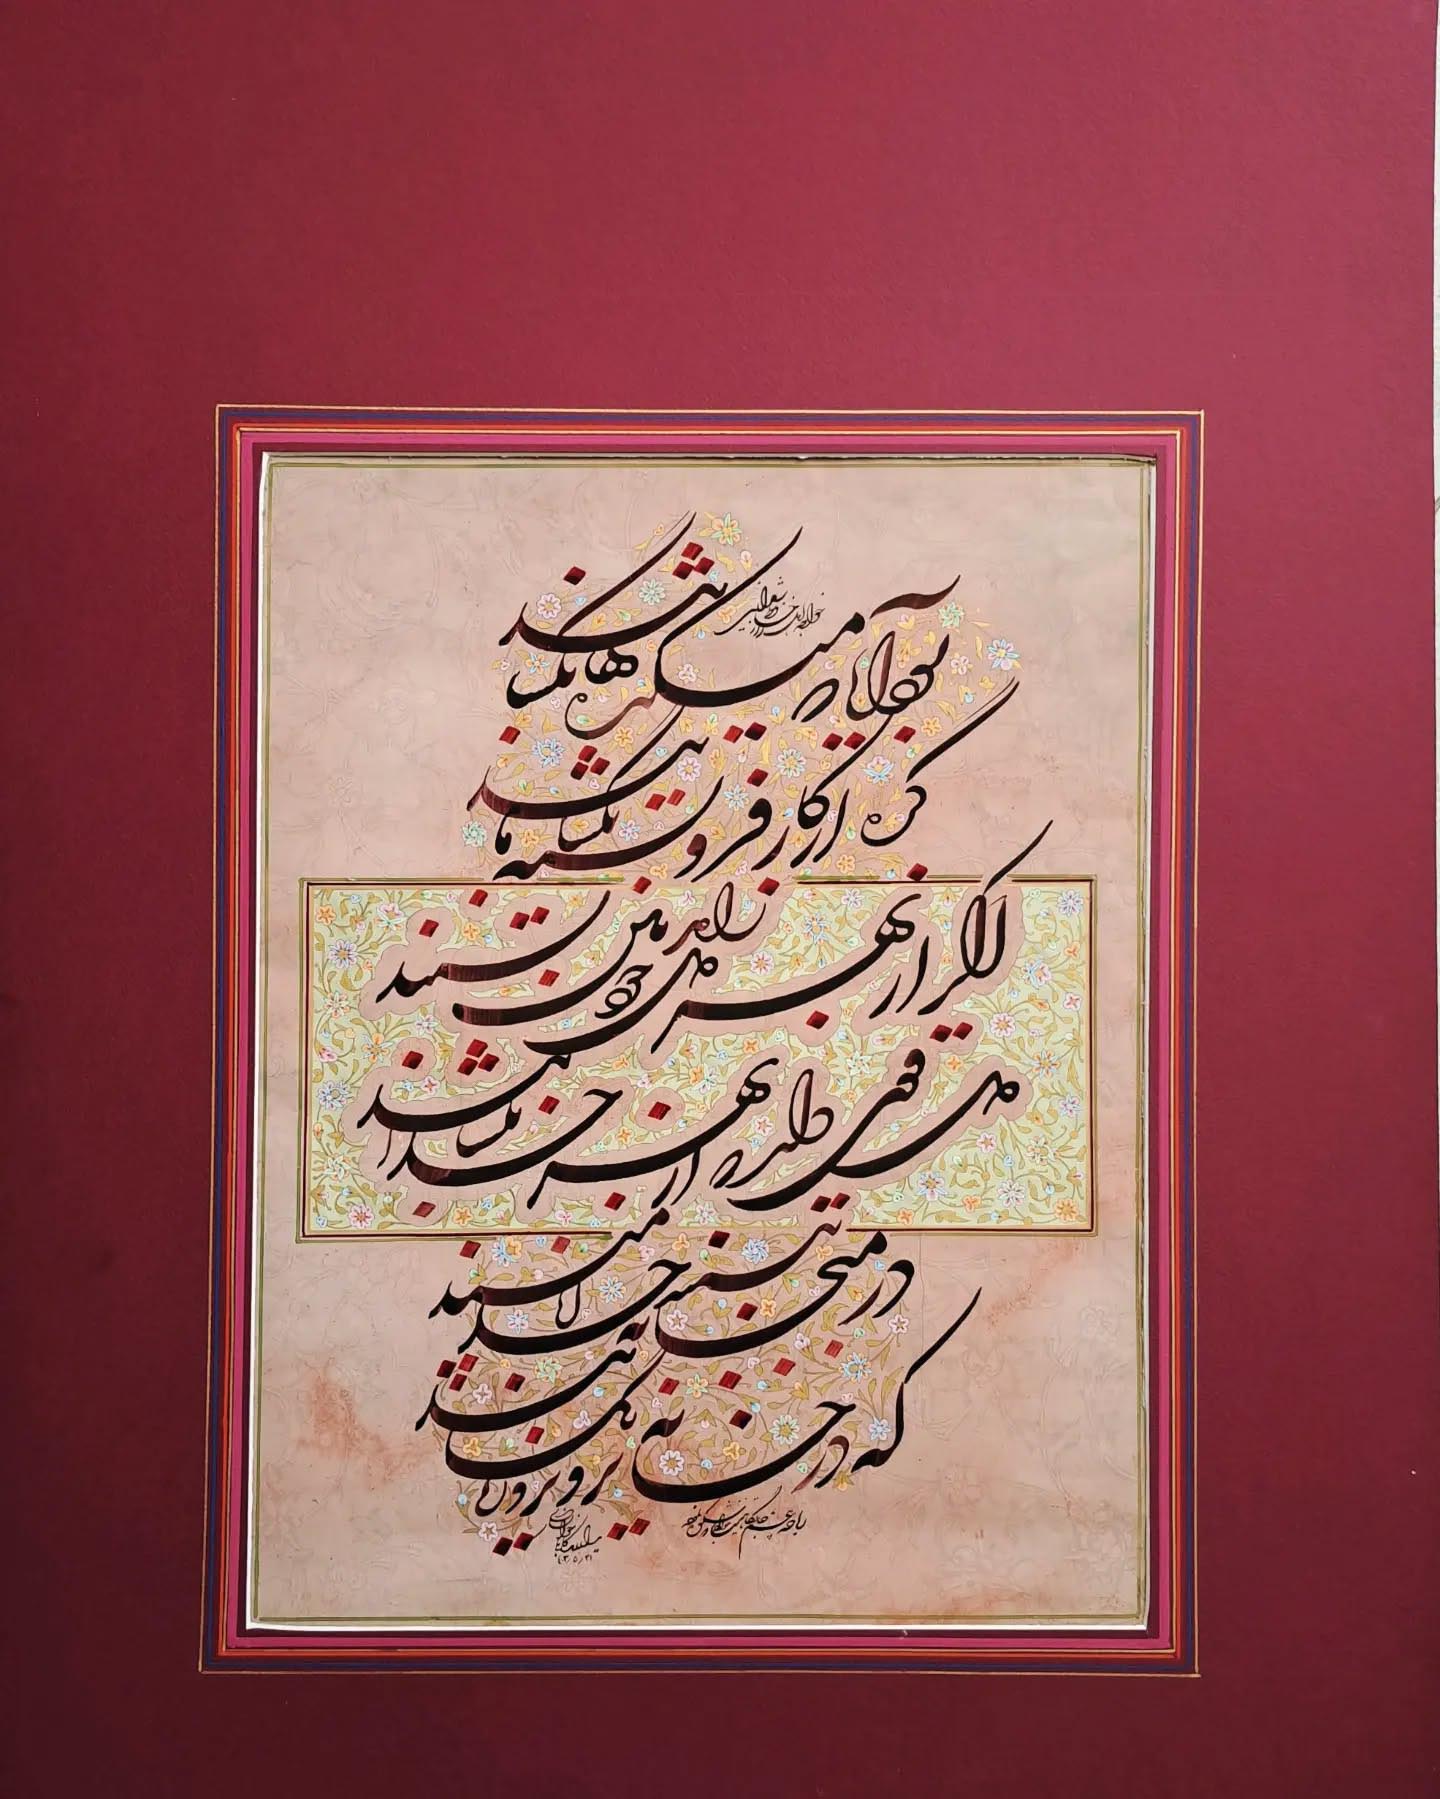 بود آیا که در میکده‌ها بگشایند
گره از کار فروبسته ما بگشایند
اگر از بهر دل زاهد خودبین بستند
دل قوی دار که از بهر خدا بگشایند
در میخانه ببستند خدایا مپسند
که در خانه تزویر و ریا بگشایند